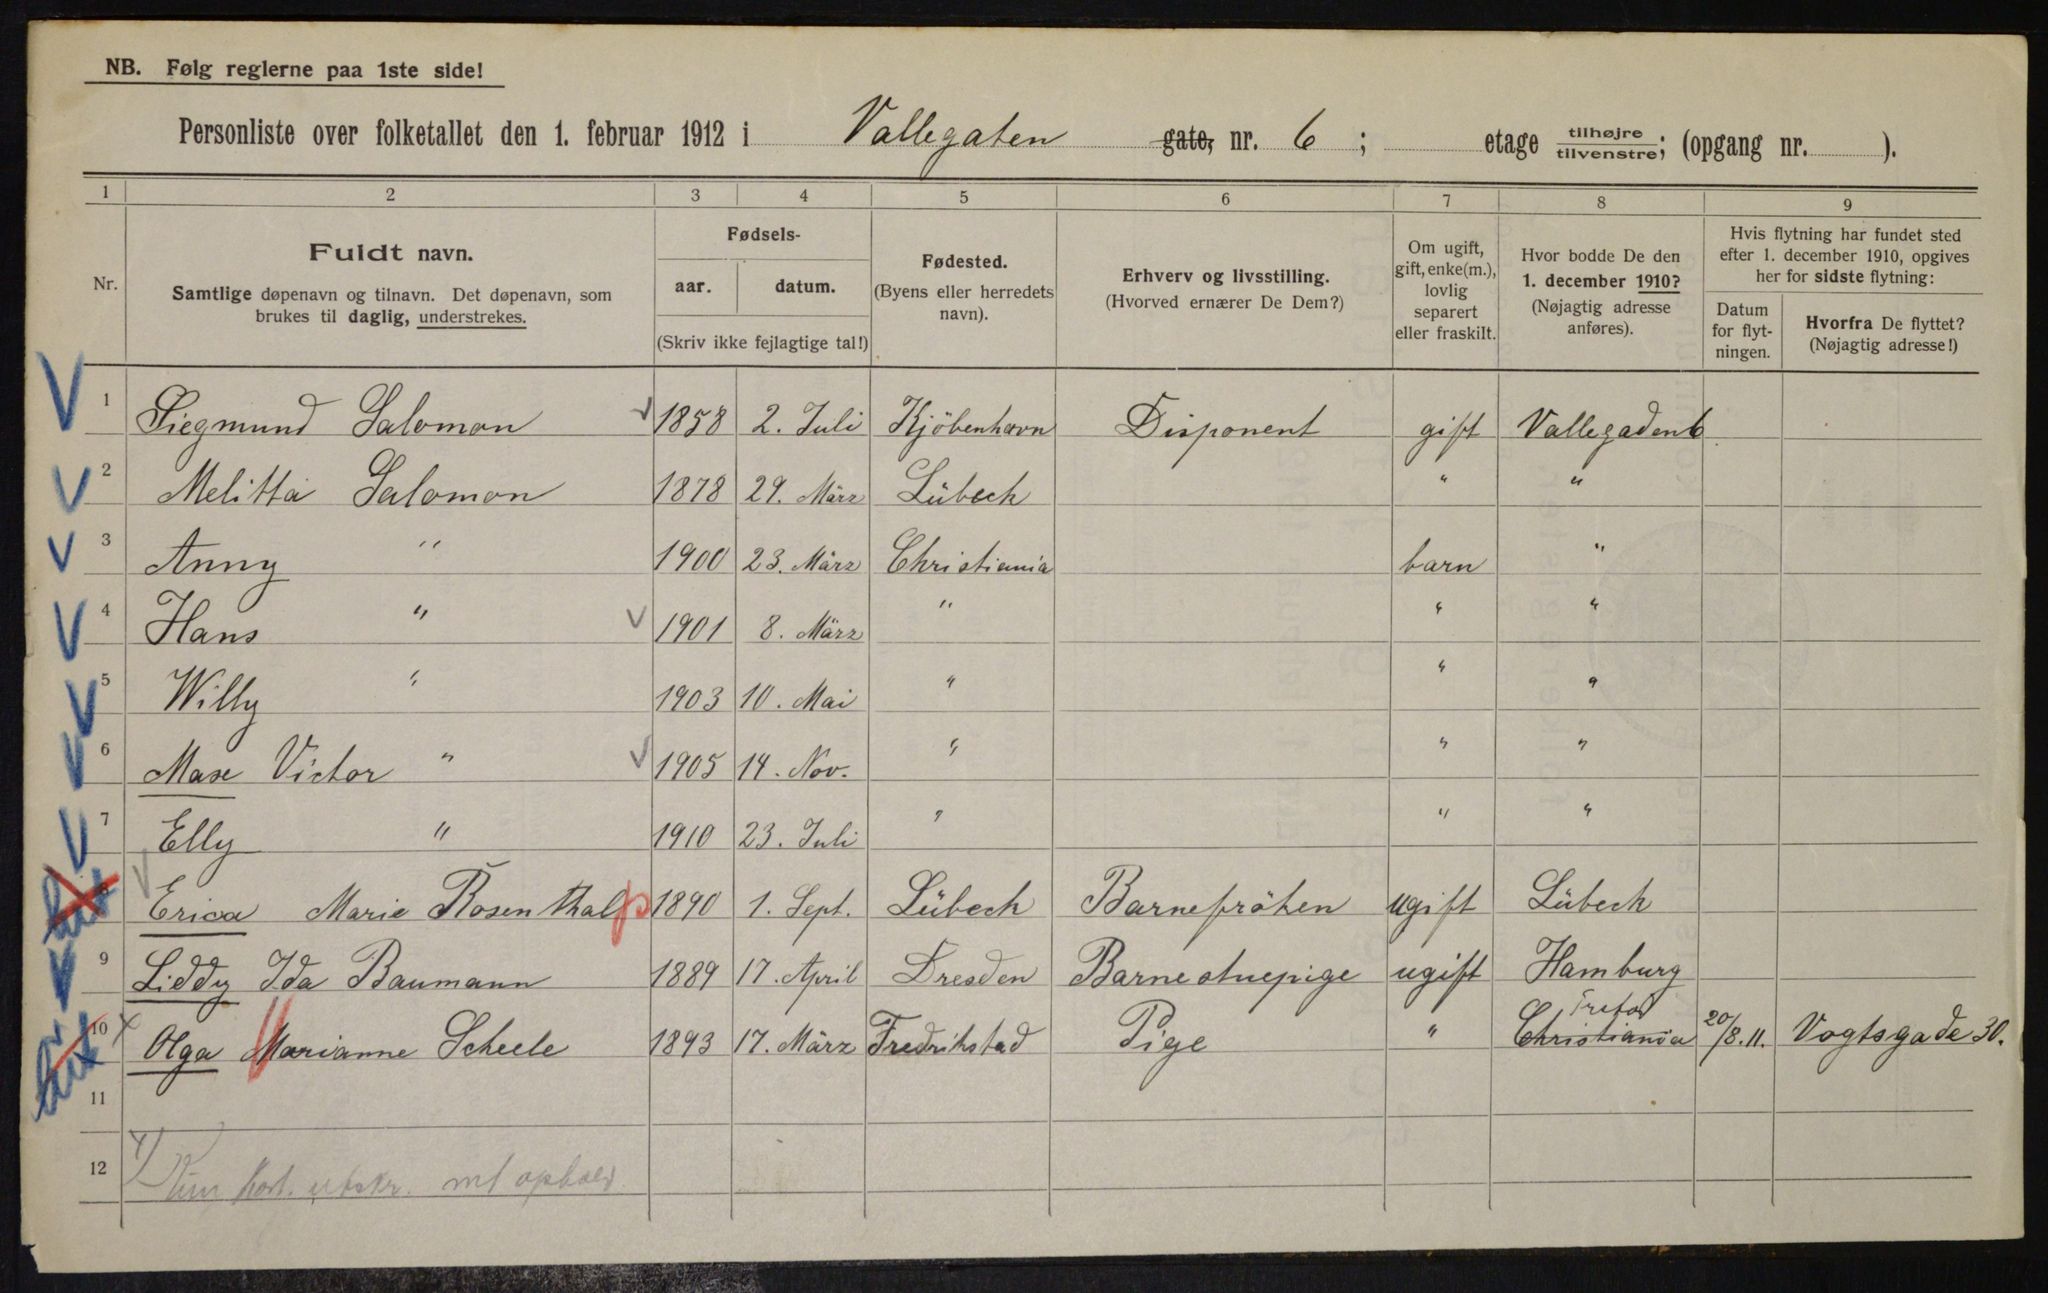 NB. Følg reglerne paa 1ste side!
Personliste over folketallet den 1. februar 1912 i Vallegaten gate, nr. 6; etage tilhøjre/tilvenstre; (opgang nr. ).
1 2 3 4 5 6 7 8 9
Nr.
Fuldt navn.
Samtlige døpenavn og tilnavn. Det døpenavn, som
brukes til daglig, understrekes.
Fødsels-
aar. datum.
(Skriv ikke fejlagtige tal!)
Fødested.
(Byens eller herredets
navn).
Erhverv og livsstilling.
(Hvorved ernærer De Dem?)
Om ugift,
gift, enke(m.),
lovlig
separert
eller fraskilt.
Hvor bodde De den
1. december 1910?
(Nøjagtig adresse
anføres).
Hvis flytning har fundet sted
efter 1. december 1910, opgives
her for sidste flytning:
Datum
for flyt-
ningen.
Hvorfra De flyttet?
(Nøjagtig adresse!)
1 Siegmund Salomon 1858 2. Juli Kjöbenhavn Disponent gift Vallegaden 6
2 Melitta Salomon 1878 29. März Lübeck " "
3 Anny " 1900 23. März Christiania barn "
4 Hans " 1901 8. März " " "
5 Willy " 1903 10. Mai " " "
6 Max Victor " 1905 14. Nov. " " "
7 Elly " 1910 23. Juli " " "
8 Erica Marie Rosenthal 1890 1. Sept. Lübeck Barnefröken ugift Lübeck
9 Liddy Ida Baumann 1889 17. April Dresden Barnestuepige ugift Hamburg
10 Olga Marianne Scheele 1893 17. März Fredrikstad Pige " Christiania 20/8.11. Vogtsgade 30.
11
12 Kun kort utskr. ophold